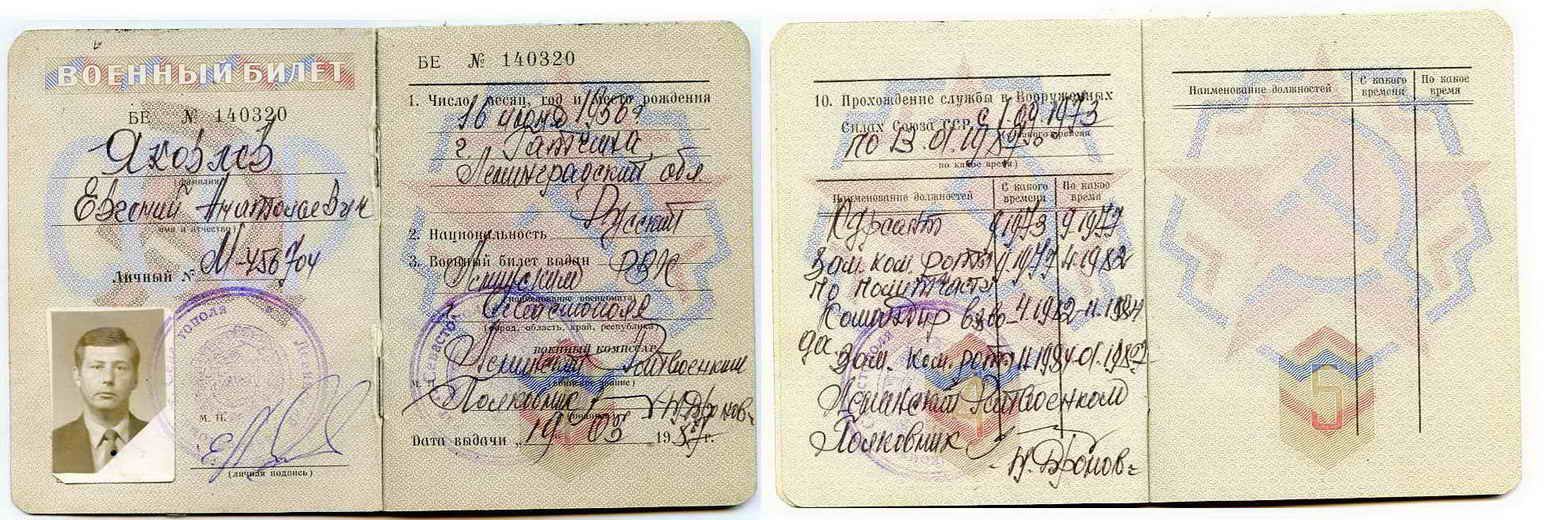 ВОЕННЫЙ БИЛЕТ
БЕ № 140320
Яковлев
(фамилия)
Евгений Анатольевич
(имя и отчество)
Личный № М-456704
Севастополя
М. П.
(личная подпись)
БЕ № 140320
1. Число, месяц, год и место рождения
16 июня 1956 г
г. Гатчина
Ленинградский обл
Русский
2. Национальность
3. Военный билет выдан Ленинским РВК
(наименование военкомата)
г. Севастополя
(город, область, край, республика)
ВОЕННЫЙ КОМИССАР
Ленинский Райвоенком
М. П.
(воинское звание)
Полковник Н. Бронов
(подпись)
Дата выдачи „19" 03 1987г.
10. Прохождение службы в Вооруженных
Силах Союза ССР с 1.09.1973
(с какого времени
по 13.01.19
по какое время)
Наименование должностей
С какого времени
По какое время
Курсант 9.1973 9.1977
Зам. ком. роты 9.1977 4.1982
по политчасти
Командир взво- 4.1982 11.1984
да
Зам. ком. роты 11.1984 01.1987
Ленинский Райвоенком
Полковник
Н. Бронов
Наименование должностей
С какого времени
По какое время